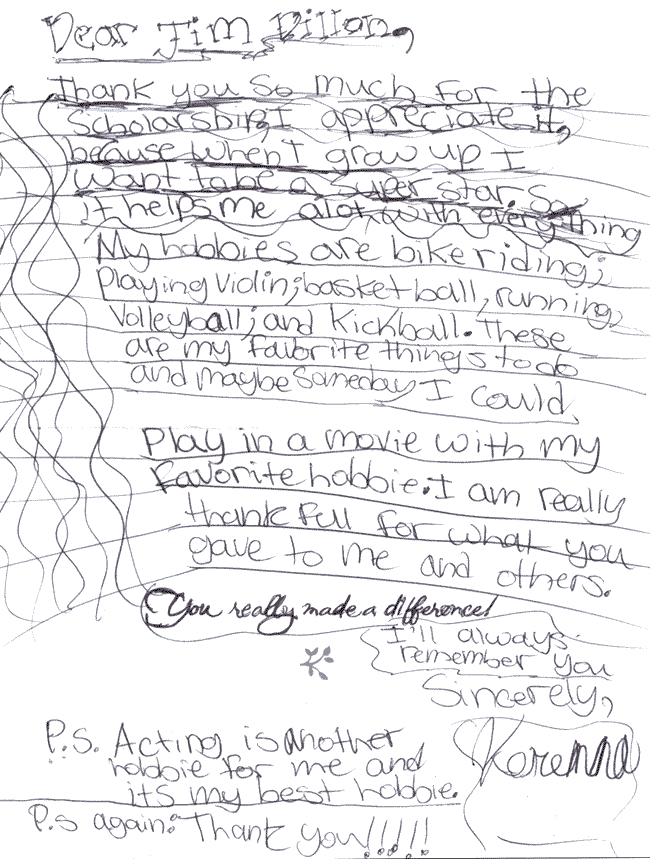 Dear Jim Dillon,
Thank you so much for the
Scholarship, I appreciate it,
because when I grow up I
want to be a super star. So
it helps me alot with everything
My hobbies are bike riding;
Playing violin; basketball, running,
Volleyball; and kickball. These
are my favorite things to do
and maybe someday I could,
Play in a movie with my
favorite hobbie. I am really
thankfull for what you
gave to me and others.
You really made a difference!
I'll always
remember you
Sincerely,
Korenna
P.S. Acting is another
hobbie for me and
its my best hobbie.
P.s again: Thank you!!!!!